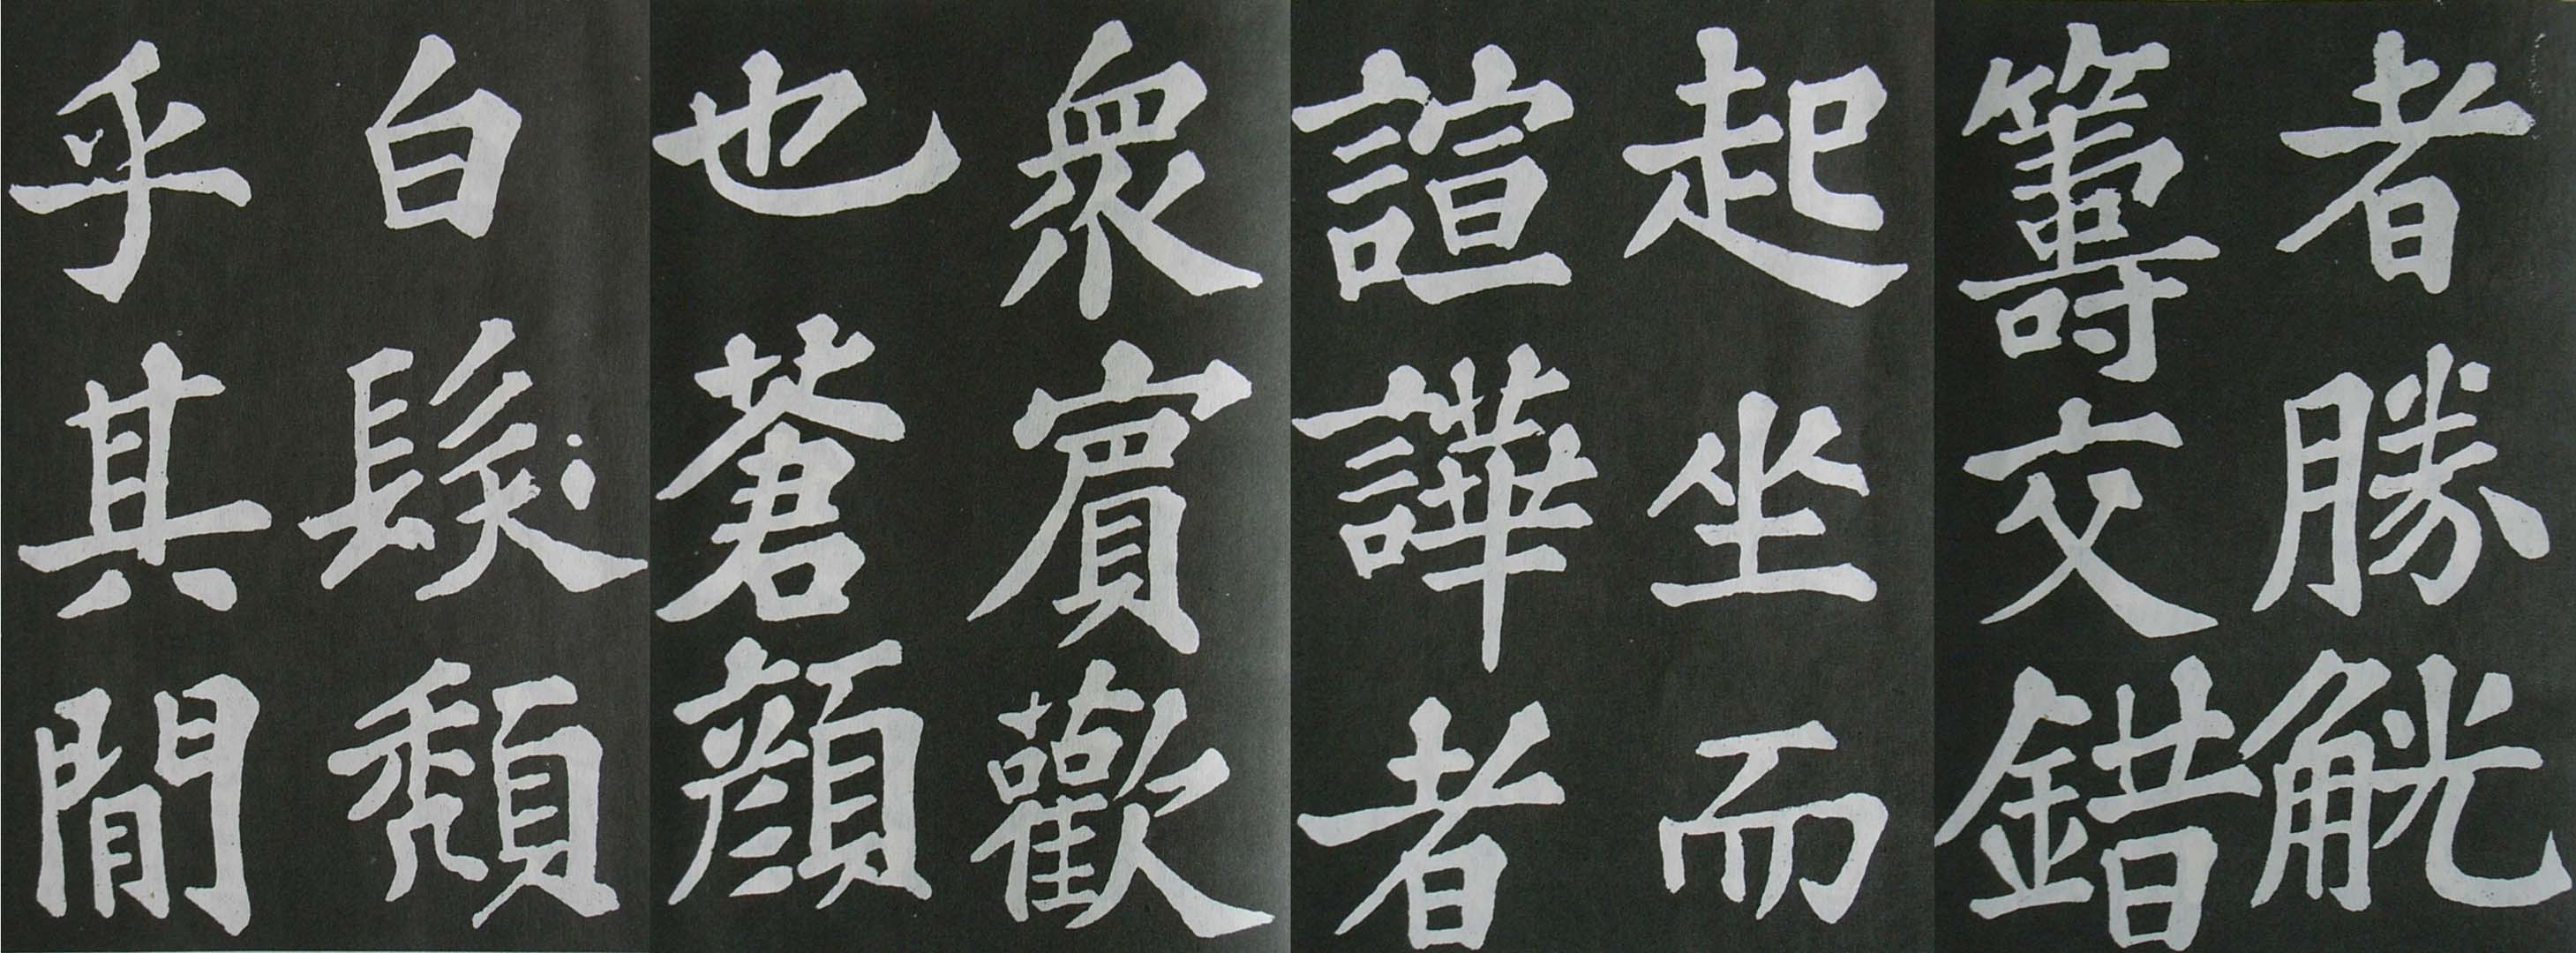 者勝觥
籌交錯
起坐而
諠譁者
衆賓歡
也蒼顔
白髮頹
乎其間